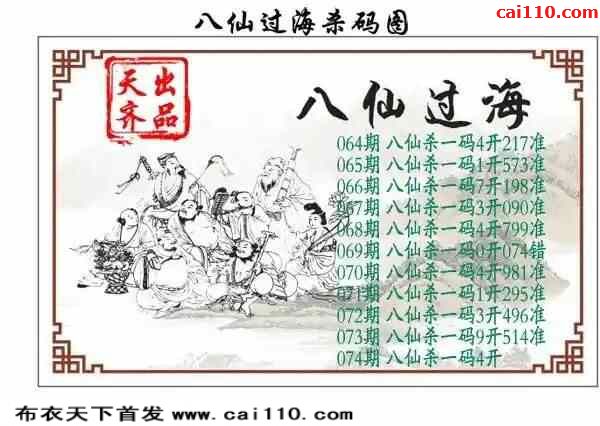 八仙过海杀码图
cai110.com
天齐
出品
八仙过海
064期 八仙杀一码4开217准
065期 八仙杀一码1开573准
066期 八仙杀一码7开198准
067期 八仙杀一码3开090准
068期 八仙杀一码4开799准
069期 八仙杀一码0开074错
070期 八仙杀一码4开981准
071期 八仙杀一码1开295准
072期 八仙杀一码3开496准
073期 八仙杀一码9开514准
074期 八仙杀一码4开
布衣天下首发 www.cai110.com